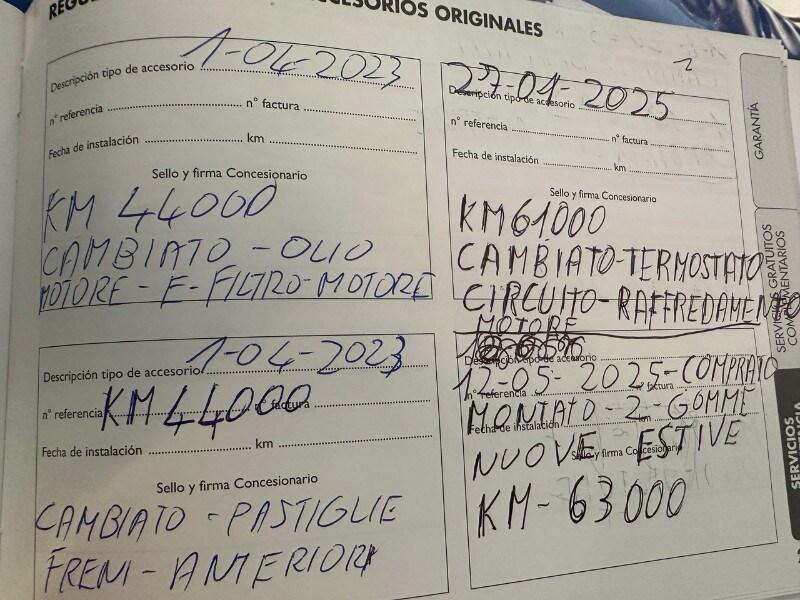 ACCESORIOS ORIGINALES
1-04-2023
Descripción tipo de accesorio
n° referencia n° factura
Fecha de instalación km
Sello y firma Concesionario
KM 44000
CAMBIATO - OLIO
MOTORE - E - FILTRO - MOTORE
1-04-2023
Descripción tipo de accesorio
n° referencia KM 44000 factura
Fecha de instalación km
Sello y firma Concesionario
CAMBIATO - PASTIGLIE
FRENI - ANTERIORI
2
27-01-2025
Descripción tipo de accesorio
n° referencia n° factura
Fecha de instalación km
Sello y firma Concesionario
KM 61000
CAMBIATO-TERMOSTATO
CIRCUITO-RAFFREDAMENTO
MOTORE
Descripción tipo de accesorio
12-05-2025-COMPRATO
n° referencia factura
MONTATO - 2 - GOMME
Fecha de instalación km
NUOVE ESTIVE
Sello y firma Concesionario
KM - 63000
GARANTÍA
SERVICIOS GRATUITOS
SERVICIOS